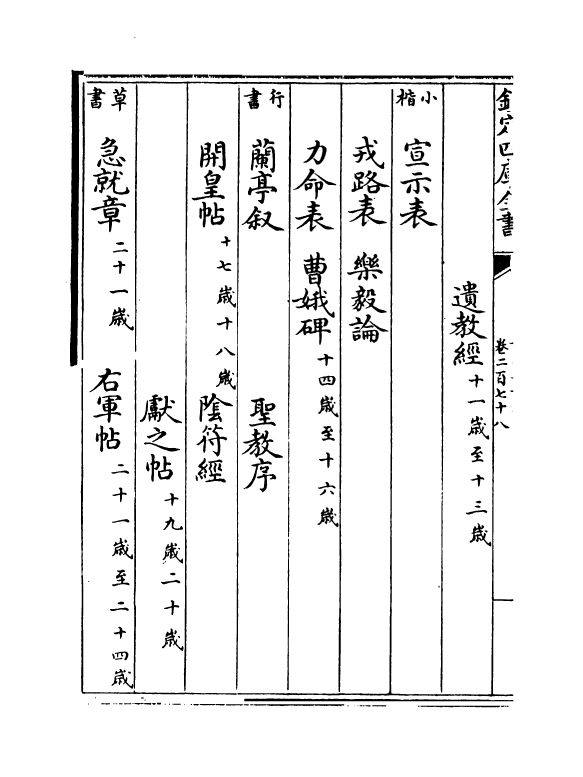 欽定四庫全書
卷二百七十八
遺教經十一歲至十三歲
小楷 宣示表
戎路表 樂毅論
力命表 曹娥碑十四歲至十六歲
行書 蘭亭叙 聖教序
開皇帖十七歲十八歲 陰符經
獻之帖十九歲二十歲
草書 急就章二十一歲 右軍帖二十一歲至二十四歲